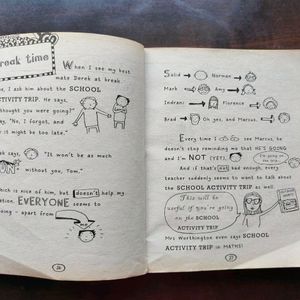 break time
When I see my best
mate Derek at break
I ask him about the SCHOOL
ACTIVITY TRIP. He says,
thought you were going?"
No, I forgot, and
it might be too late."
says, "It won't be as much
without you, Tom."
which is nice of him, but doesn't help my
EVERYONE seems to
going - apart from
26
Solid
Norman
Mark
Amy
Indrani
Florence
Brad
Oh yes, and Marcus.
Every time I see Marcus, he
doesn't stop reminding me that HE'S GOING
and I'm NOT (YET).
I'm going on the trip
And if that's not bad enough, every
teacher suddenly seems to want to talk about
the SCHOOL ACTIVITY TRIP as well.
This will be
useful if you're going
on the SCHOOL
ACTIVITY TRIP
Mrs Worthington even says SCHOOL
ACTIVITY TRIP in MATHS!
27